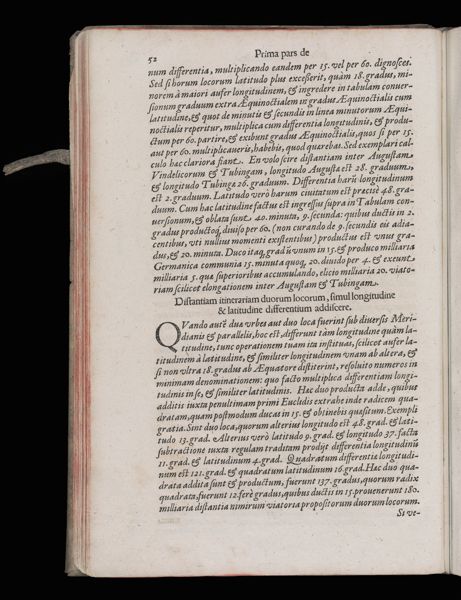 52
Prima pars de
num differentia, multiplicando eandem per 15. vel per 60. dignosces.
Sed si horum locorum latitudo plus excesserit, quàm 18. gradus, mi-
norem à maiori aufer longitudinem, & ingredere in tabulam conuer-
sionum graduum extra Æquinoctialem in gradus Æquinoctialis cum
latitudine, & quot de minutis & secundis in linea minutorum Æqui-
noctialis reperitur, multiplica cum differentia longitudinis, & produ-
ctum per 60. partire, & exibunt gradus Æquinoctialis, quos si per 15.
aut per 60. multiplicaueris, habebis, quod quærebas. Sed exemplari cal-
culo hæc clariora fiant. En volo scire distantiam inter Augustam
Vindelicorum & Tubingam, longitudo Augustæ est 28. graduum,
& longitudo Tubingæ 26. graduum. Differentia harū longitudinum
est 2. graduum. Latitudo verò harum ciuitatum est præcisè 48. gra-
duum. Cum hac latitudine factus est ingressus supra in Tabulam con-
uersionum, & oblata sunt 40. minuta, 9. secunda: quibus ductis in 2.
gradus productoq́; diuiso per 60. (non curando de 9. secundis eis adia-
centibus, vti nullius momenti existentibus) productus est vnus gra-
dus, & 20. minuta. Duco itaq; gradū vnum in 15. & produco milliaria
Germanica communia 15. minuta quoq; 20. diuido per 4. & exeunt
milliaria 5. quæ superioribus accumulando, elicio milliaria 20. viato-
riam scilicet elongationem inter Augustam & Tubingam.
Distantiam itinerariam duorum locorum, simul longitudine
& latitudine differentium addiscere.
QVando autē duæ vrbes aut duo loca fuerint sub diuersis Meri-
dianis & parallelis, hoc est, differunt tàm longitudine quàm la-
titudine, tunc operationem tuam ita instituas, scilicet aufer la-
titudinem à latitudine, & similiter longitudinem vnam ab altera, &
si non vltra 18. gradus ab Æquatore distiterint, resoluito numeros in
minimam denominationem: quo facto multiplica differentiam longi-
tudinis in se, & similiter latitudinis. Hæc duo producta adde, quibus
additis iuxta penultimam primi Euclidis extrahe inde radicem qua-
dratam, quam postmodum ducas in 15. & obtinebis quæsitum. Exempli
gratia. Sint duo loca, quorum alterius longitudo est 48. grad. & lati-
tudo 13. grad. Alterius verò latitudo 9. grad. & longitudo 37. facta
subtractione iuxta regulam traditam prodijt differentia longitudinū
11. grad. & latitudinum 4. grad. Quadratum differentiæ longitudi-
num est 121. grad. & quadratum latitudinum 16. grad. Hæc duo qua-
drata addita sunt & productum, fuerunt 137. gradus, quorum radix
quadrata, fuerunt 12. ferè gradus, quibus ductis in 15. prouenerunt 180.
milliaria distantia nimirum viatoria propositorum duorum locorum.
Si ve-